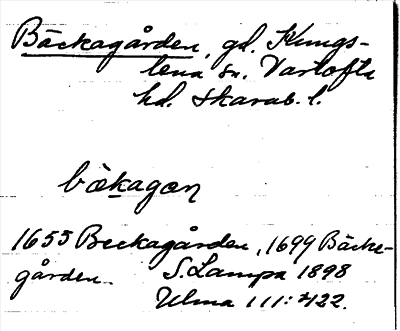 Bäckagården, gd. Kungs-
lena sn. Vartofta
hd. Skarab. l.
bækagαn
1655 Beckagården, 1699 Bäcke-
gården. S. Lampa 1898
Ulma 111:422.